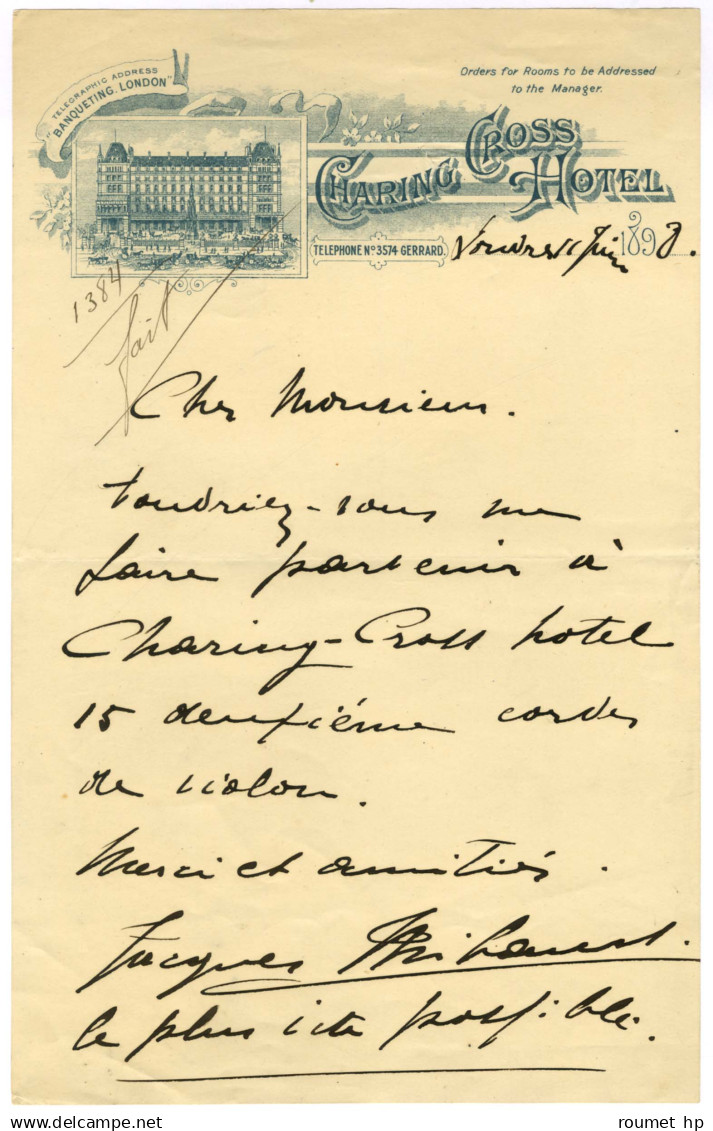 "TELEGRAPHIC ADDRESS
BANQUETING. LONDON"
Orders for Rooms to be Addressed
to the Manager.
CHARING CROSS HOTEL
TELEPHONE Nº 3574 GERRARD.
1898.
1384
fait
Cher Monsieur.
Voudriez-vous me
faire parvenir à
Charing-Cross hotel
15 deuxiéme cordes
de violon.
Merci et amitiés.
Jacques Thibaud.
le plus vite possible.
roumet hp